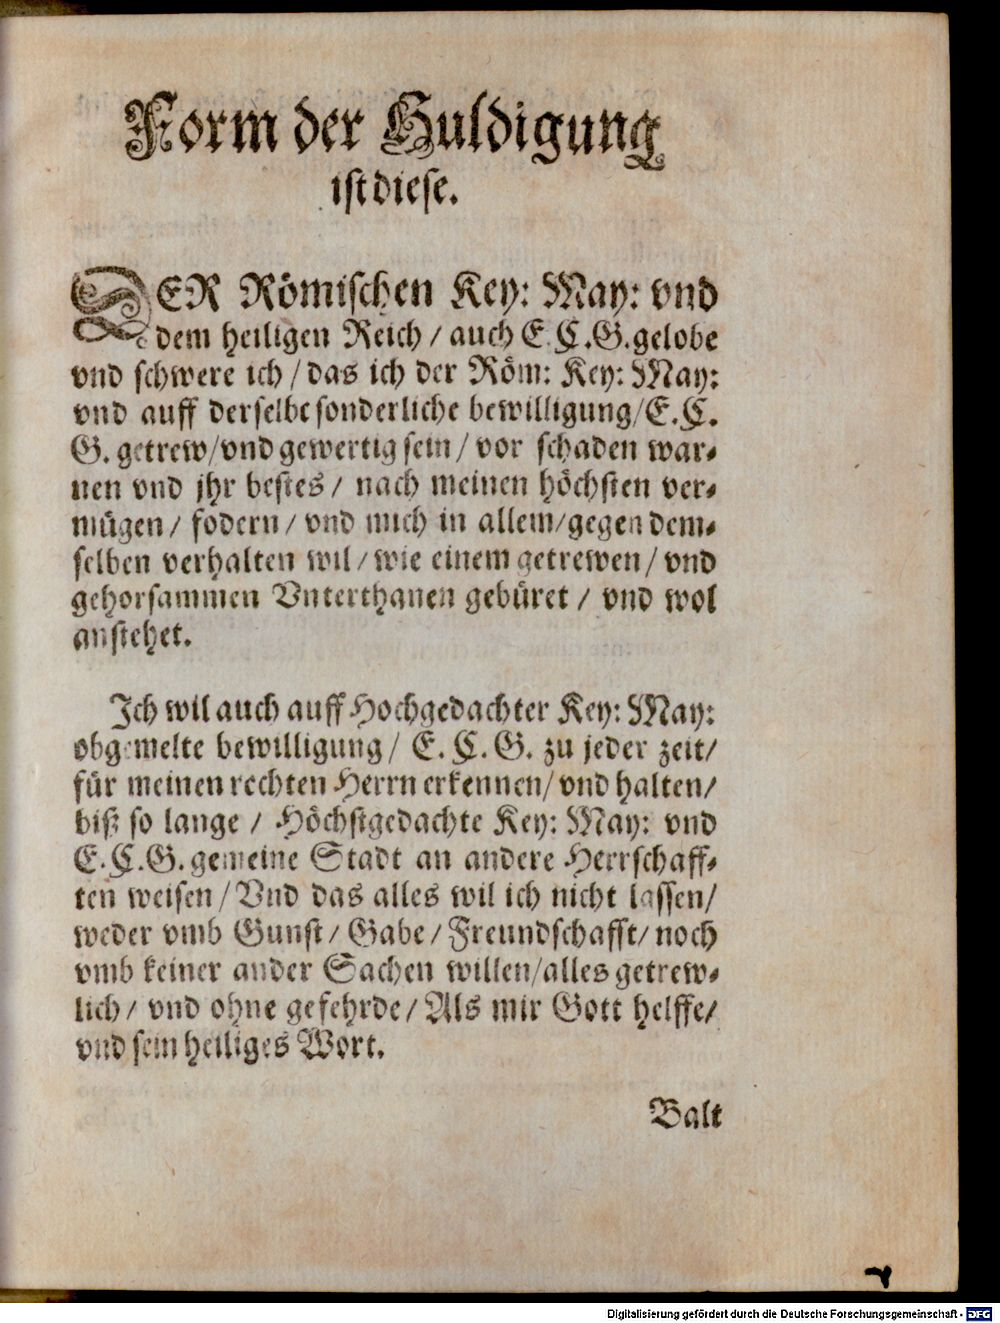 Form der Huldigung
ist diese.
DER Römischen Key: May: vnd
dem heiligen Reich / auch E.C.G. gelobe
vnd schwere ich / das ich der Röm: Key: May:
vnd auff derselbe sonderliche bewilligung/E.C.
G. getrew/vnd gewertig sein / vor schaden war-
nen vnd jhr bestes / nach meinen höchsten ver-
mügen / fodern / vnd mich in allem/gegen dem-
selben verhalten wil / wie einem getrewen / vnd
gehorsammen Vnterthanen gebüret / vnd wol
anstehet.
Ich wil auch auff Hochgedachter Key: May:
obgemelte bewilligung/ E. C. G. zu jeder zeit/
für meinen rechten Herrn erkennen/ vnd halten/
biß so lange / Höchstgedachte Key: May: vnd
E.C.G. gemeine Stadt an andere Herrschaff-
ten weisen / Vnd das alles wil ich nicht lassen/
weder vmb Gunst / Gabe / Freundschafft/ noch
vmb keiner ander Sachen willen/alles getrew-
lich / vnd ohne gefehrde / Als mir Gott helffe/
vnd sein heiliges Wort.
Balt
Digitalisierung gefördert durch die Deutsche Forschungsgemeinschaft - DFG